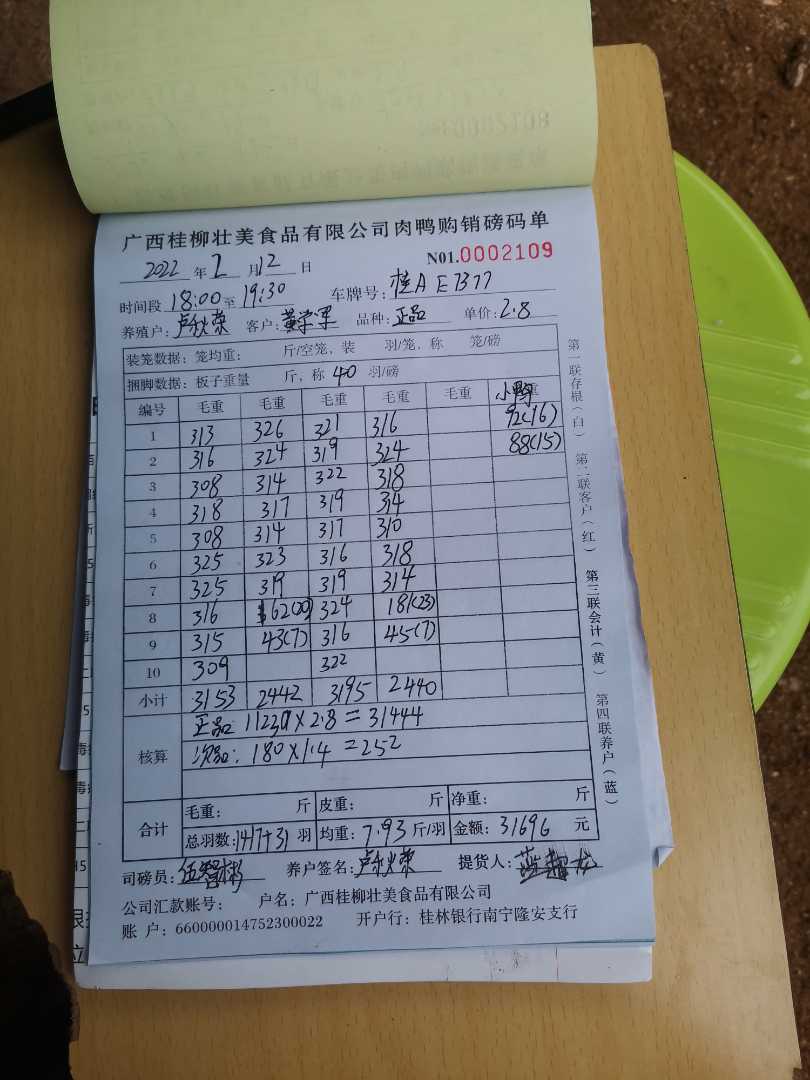 广西桂柳壮美食品有限公司肉鸭购销磅码单
2022 年 2 月 12 日 N01.0002109
时间段 18:00 至 19:30 车牌号: 桂A E7377
养殖户: 卢秋荣 客户: 黄学军 品种: 正品 单价: 2.8
装笼数据: 笼均重: 斤/空笼, 装 羽/笼, 称 笼/磅
捆脚数据: 板子重量 斤, 称 40 羽/磅
编号 毛重 毛重 毛重 毛重 毛重 小鸭
1 313 326 321 316 92(16)
2 316 324 319 324 88(15)
3 308 314 322 318
4 318 317 319 314
5 308 314 317 310
6 325 323 316 318
7 325 319 319 314
8 316 162(20) 324 181(23)
9 315 43(7) 316 45(7)
10 309 322
小计 3153 2442 3195 2440
核算 正品 11230 X 2.8 = 31444
次品: 180 X 1.4 = 252
合计 毛重: 斤 皮重: 斤 净重: 斤
总羽数: 1417+31 羽 均重: 7.93 斤/羽 金额: 31696 元
司磅员: 养户签名: 卢秋荣 提货人:
公司汇款账号: 户名: 广西桂柳壮美食品有限公司
账 户: 660000014752300022 开户行: 桂林银行南宁隆安支行
第一联存根(白) 第二联客户(红) 第三联会计(黄) 第四联养户(蓝)